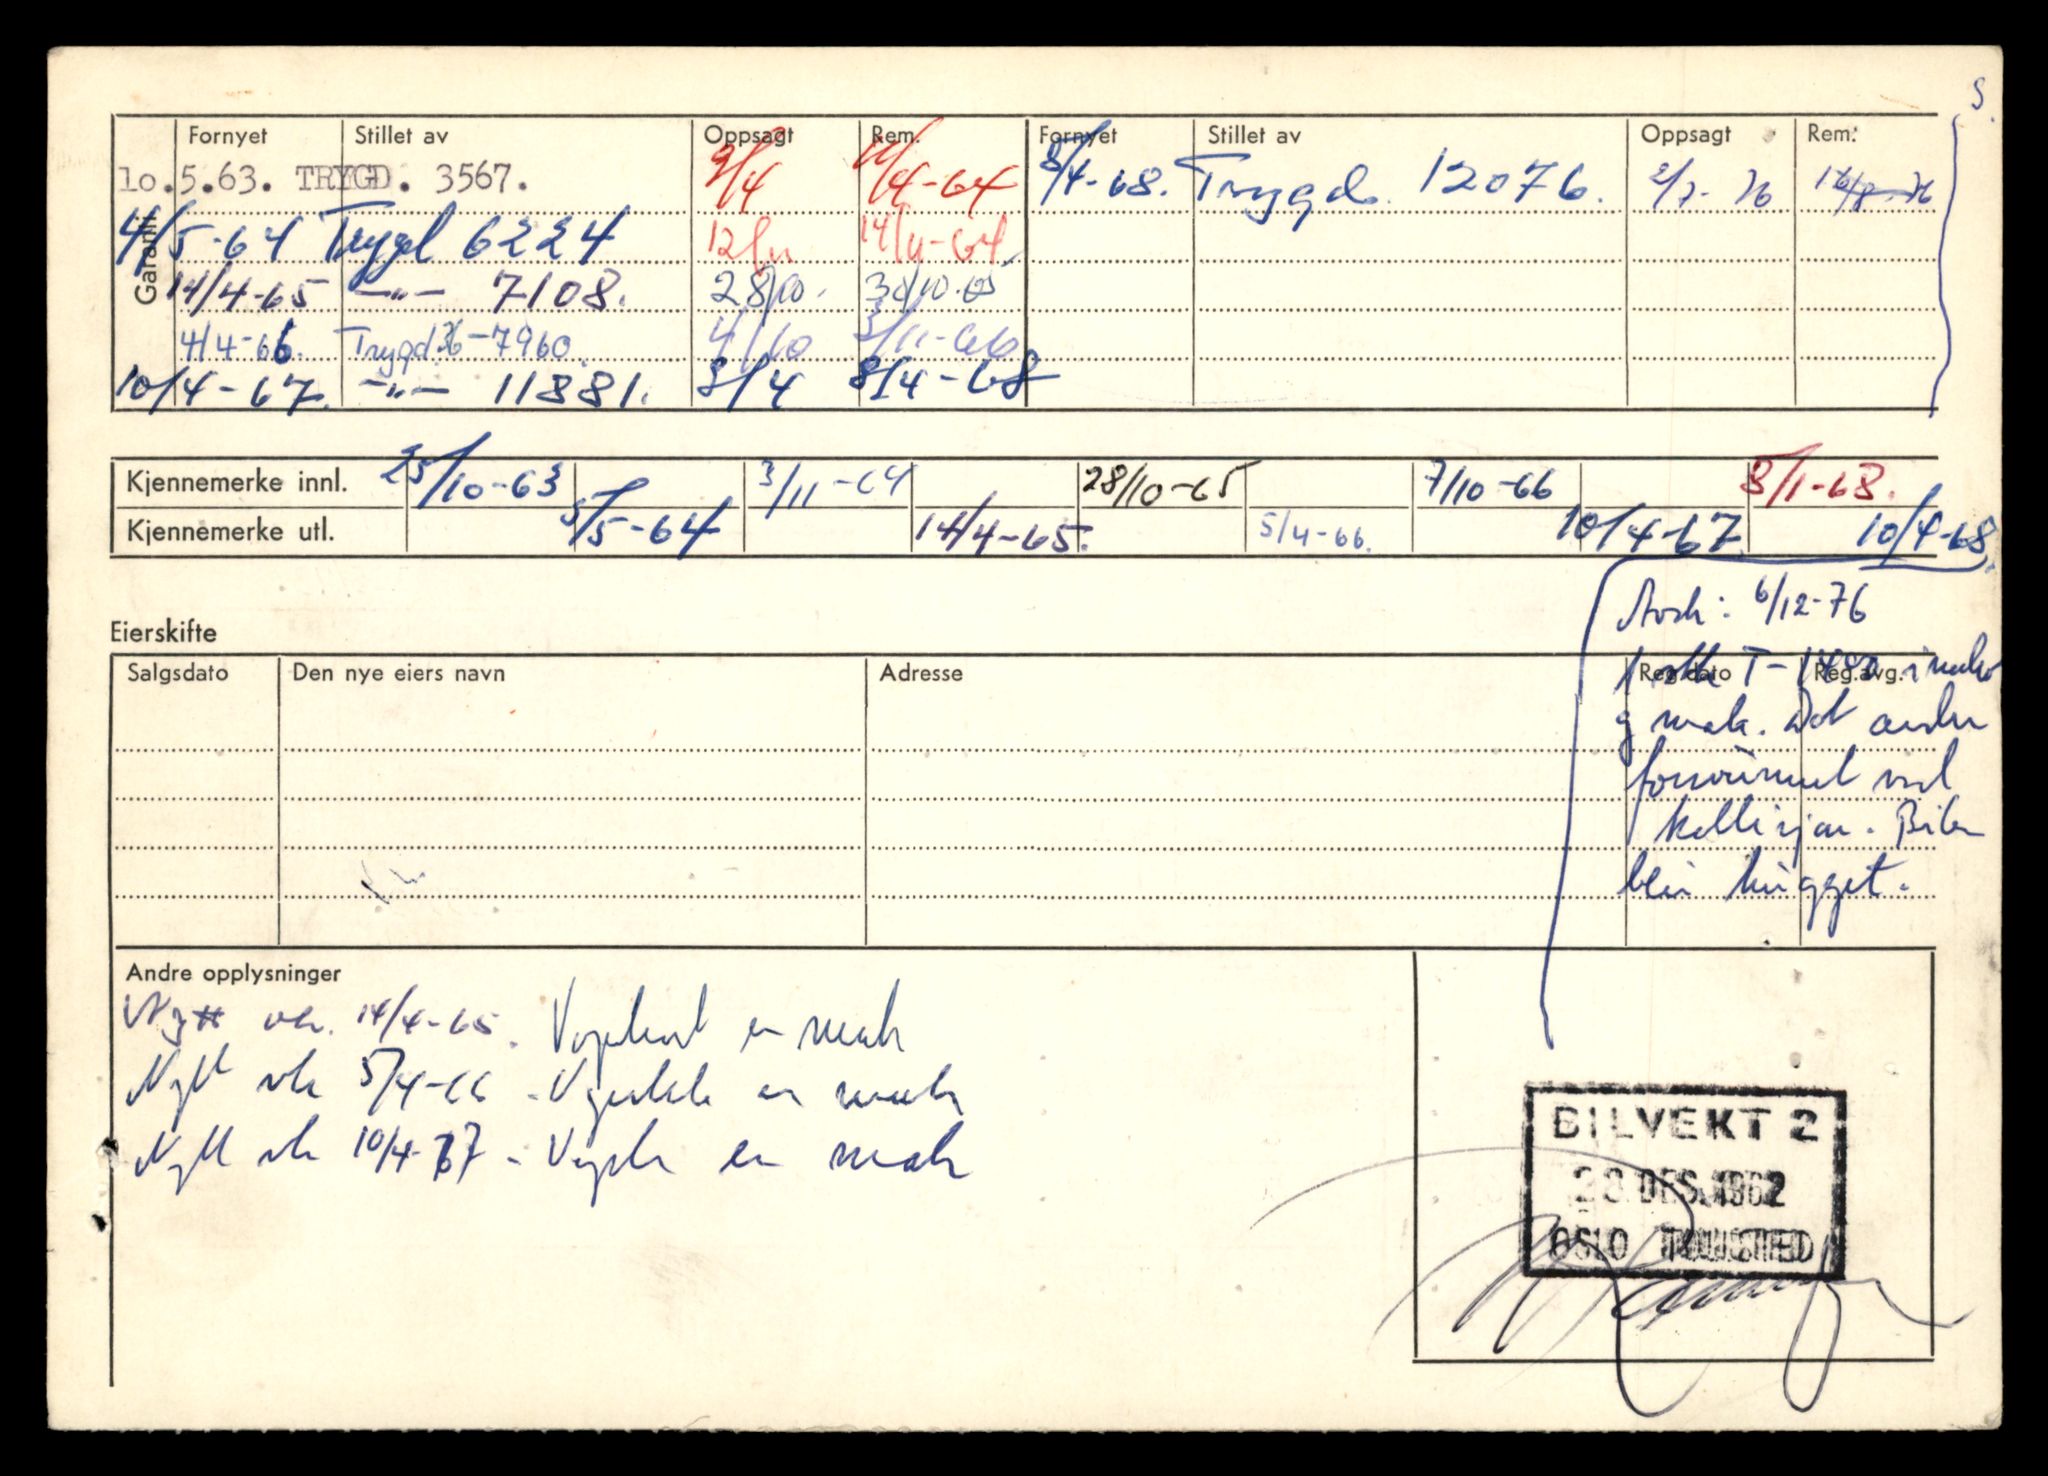 S.
Fornyet Stillet av Oppsagt Rem. Fornyet Stillet av Oppsagt Rem.
Garanti
lo.5.63. TRYGD. 3567. 9/4 /4-64 8/4-68. Trygd. 12076. 2/7-76 76
4/5-64 Trygd 6224 12/11 14/11-64
14/4-65 —"— 7108. 28/10. 30/10.65
4/4-66. Trygd 36-7960. 4/10 3/11-66
10/4-67. —"— 11881. 8/4 8/4-68
Kjennemerke innl. 25/10-63 3/11-64 28/10-65 7/10-66 8/1-68.
Kjennemerke utl. 5/5-64 14/4-65. 5/4-66. 10/4-67. 10/4-68.
Avsk: 6/12-76
Eierskifte
Salgsdato Den nye eiers navn Adresse Reg.dato Reg.avg.
1 T-1480
mak. Det andre
forsvunnet ved
kollisjon. Bilen
blir hugget.
Andre opplysninger
Nytt vk. 14/4-65. Vognkort er mak
Nytt vk 5/4-66 - er mak
Nytt vk 10/4-67 - er mak
BILVEKT 2
28 DES. 1962
OSLO TOLLSTED